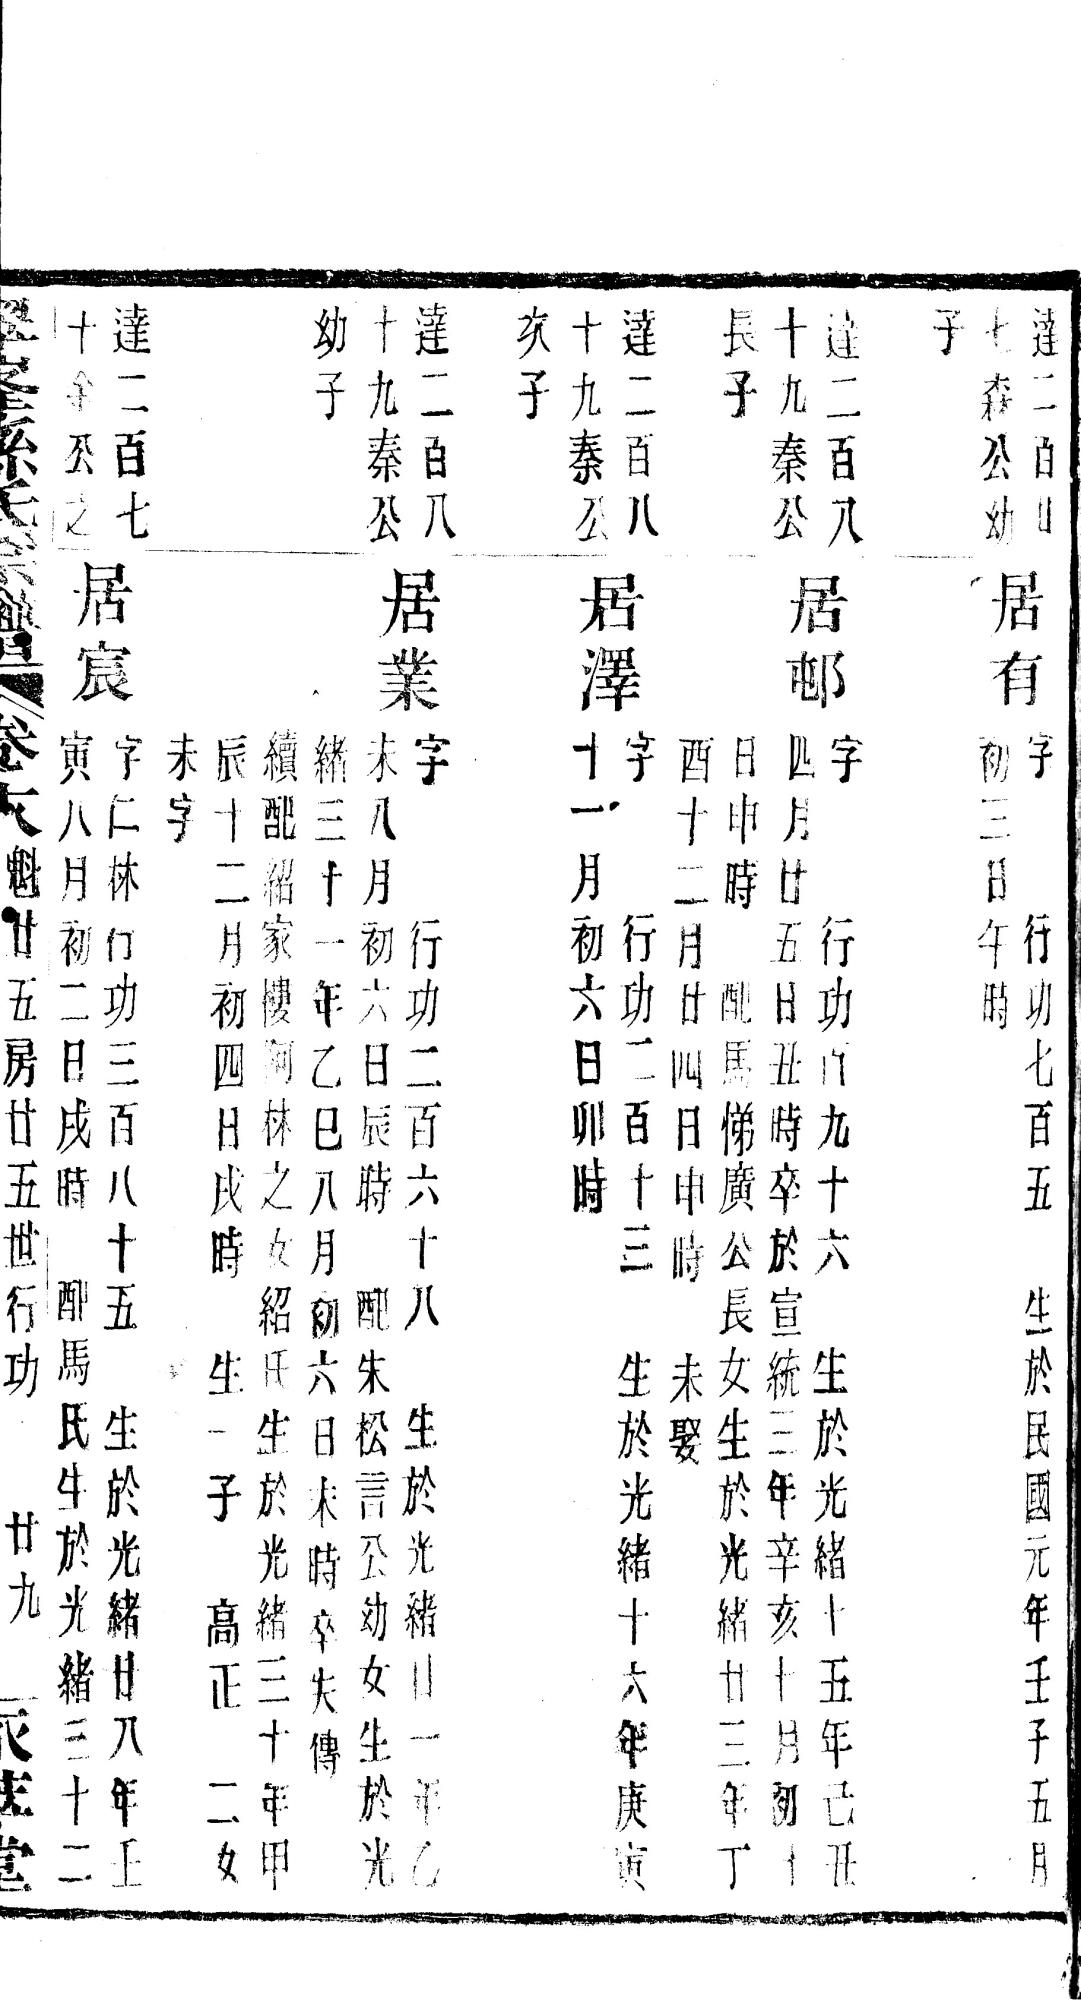 達二百廿
七森公幼
子
居有
字　行功七百五　生於民國元年壬子五月
初三日午時
達二百八
十九秦公
長子
居邨
字　行功百九十六　生於光緒十五年己丑
四月廿五日丑時卒於宣統三年辛亥十月初十
日申時　配馬悌廣公長女生於光緒廿三年丁
酉十二月廿四日申時　未娶
達二百八
十九秦公
次子
居澤
字　行功二百十三　生於光緒十六年庚寅
十一月初六日卯時
達二百八
十九秦公
幼子
居業
字　行功二百六十八　生於光緒廿一年乙
未八月初六日辰時　配朱松言公幼女生於光
緒三十一年乙巳八月初六日未時卒失傳
續配紹家樓阿林之女紹氏生於光緒三十年甲
辰十二月初四日戌時　生一子　高正　二女
未字
達二百七
十余公之
居宸
字仁林行功三百八十五　生於光緒廿八年壬
寅八月初二日戌時　配馬氏生於光緒三十二
孫氏宗譜　卷六　魁廿五房廿五世行功　廿九　堂